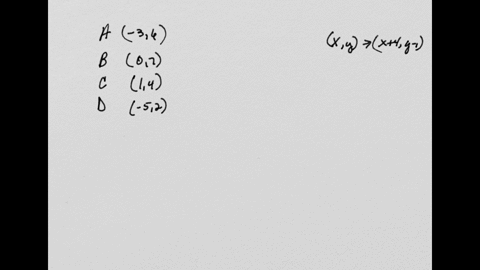 A (-3,6)
B (0,7)
C (1,4)
D (-5,2)
(x,y) → (x+4, y-